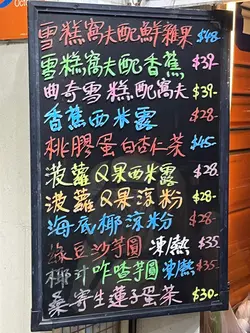 雪糕窩夫配鮮雜果 $48-
雪糕窩夫配香蕉 $39-
曲奇雪糕配窩夫 $39-
香蕉西米露 $28-
桃膠蛋白杏仁茶 $45-
菠蘿Q果西米露 $28-
菠蘿Q果涼粉 $28-
海底椰涼粉 $28-
綠豆沙芋圓 凍熱 $35
椰汁咋喳芋圓 凍熱 $35-
桑寄生蓮子蛋茶 $30-